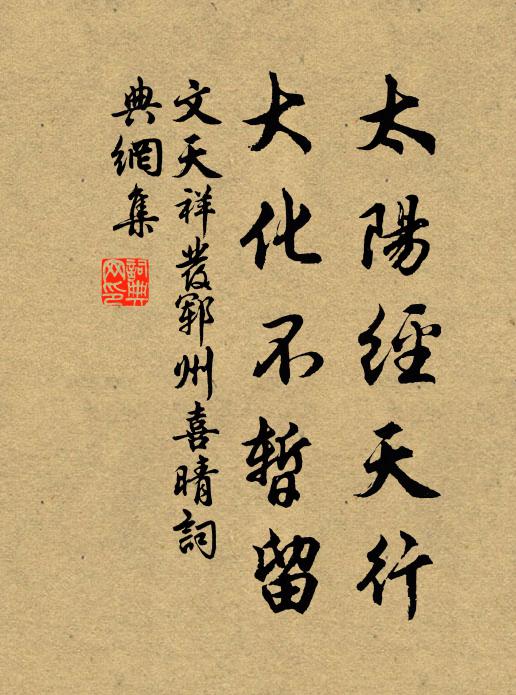 太陽經天行
大化不暫留
文天祥發鄆州喜晴詞
典網集
詞典
網印